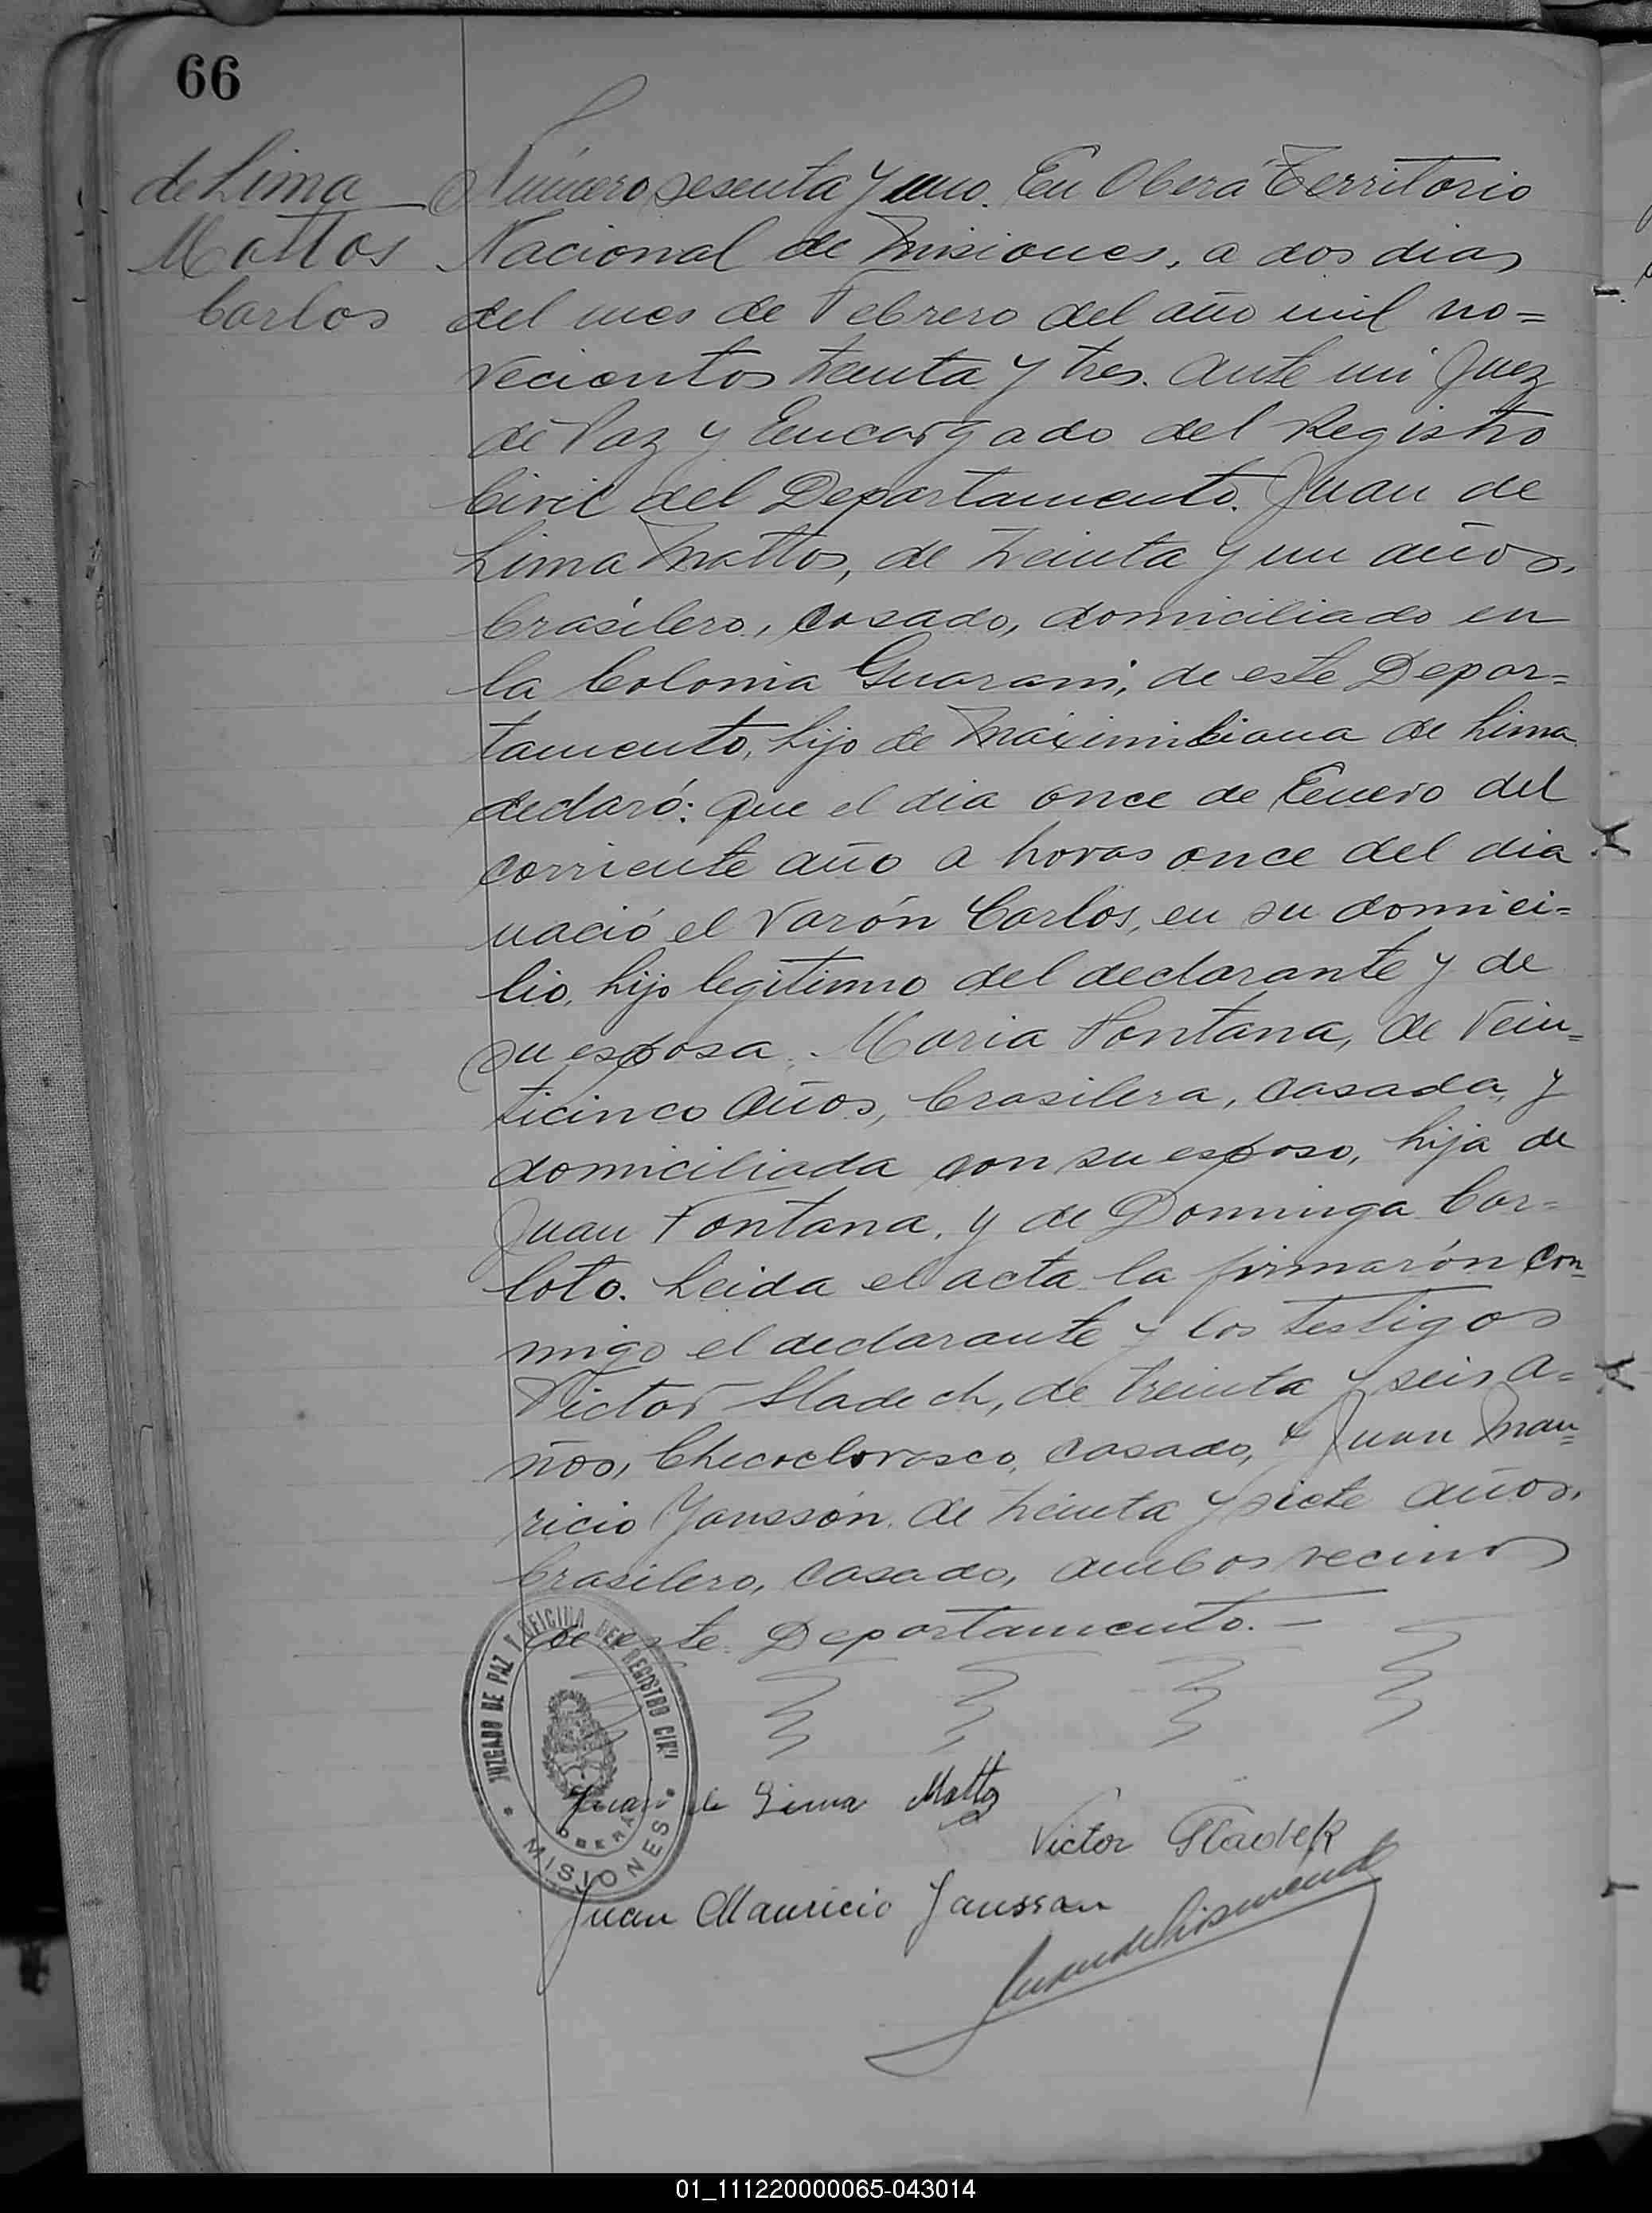 66
de Lima
Mattos
Carlos
Número sesenta y uno. En Oberá Territorio
Nacional de Misiones, a dos dias
del mes de Febrero del año mil no=
vecientos treinta y tres. Ante mi Juez
de Paz y Encargado del Registro
Civil del Departamento. Juan de
Lima Mattos, de treinta y un años,
brasilero, casado, domiciliado en
la Colonia Guarani, de este Depar=
tamento, hijo de Maximiliana de Lima
declaró: que el dia once de Enero del
corriente año a horas once del dia
nació el varón Carlos, en su domici=
lio, hijo legitimo del declarante y de
su esposa, Maria Fontana, de vein=
ticinco años, brasilera, casada, y
domiciliada con su esposo, hija de
Juan Fontana, y de Dominga Cor=
loto. Leida el acta la firmarón con=
migo el declarante y los testigos
Victor Sladech, de treinta y seis a=
ños, Checoclovasco, casado, y Juan Mau=
ricio Jansson, de treinta y siete años,
brasilero, casado, ambos vecinos
de este Departamento.—
JUZGADO DE PAZ Y OFICINA DEL REGISTRO CIVIL
OBERÁ
MISIONES
Juan de Lima Mattos
Victor Sladek
Juan Mauricio Janssan
01_111220000065-043014